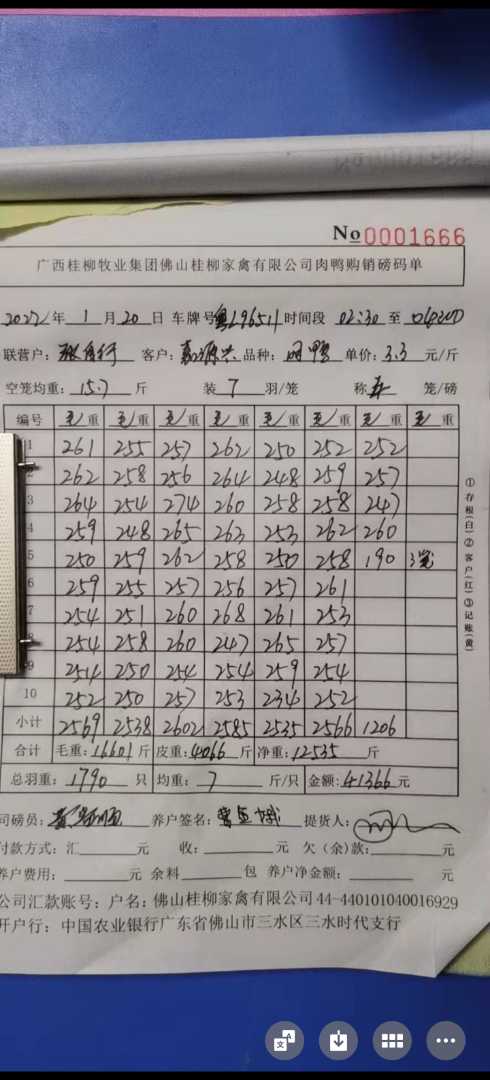 No 0001666
广西桂柳牧业集团佛山桂柳家禽有限公司肉鸭购销磅码单
2022年 1 月 20 日 车牌号 粤L96511 时间段 02:30 至
联营户: 客户: 品种: 肉鸭 单价: 3.3 元/斤
空笼均重: 15.7 斤 装 7 羽/笼 称 笼/磅
编号 毛重 毛重 毛重 毛重 毛重 毛重 毛重 毛重
1 261 255 257 262 250 252 252
262 258 256 264 248 259 257
3 264 254 274 260 258 258 247
4 259 248 265 263 253 262 260
5 250 259 262 258 250 258 190 3笼
6 259 255 257 256 257 261
7 254 251 260 268 261 253
8 254 258 260 247 265 257
9 254 250 254 254 259 254
10 252 250 257 253 234 252
小计 2569 2538 2602 2585 2535 2566 1206
合计 毛重: 16601 斤 皮重: 4066 斤 净重: 12535 斤
总羽重: 1790 只 均重: 7 斤/只 金额: 41366 元
司磅员: 养户签名: 提货人:
付款方式: 汇 元 收: 元 欠(余)款: 元
养户费用: 元 余料 包 养户净金额: 元
公司汇款账号: 户名: 佛山桂柳家禽有限公司 44-440101040016929
开户行: 中国农业银行广东省佛山市三水区三水时代支行
①存根(白)②客户(红)③记账(黄)